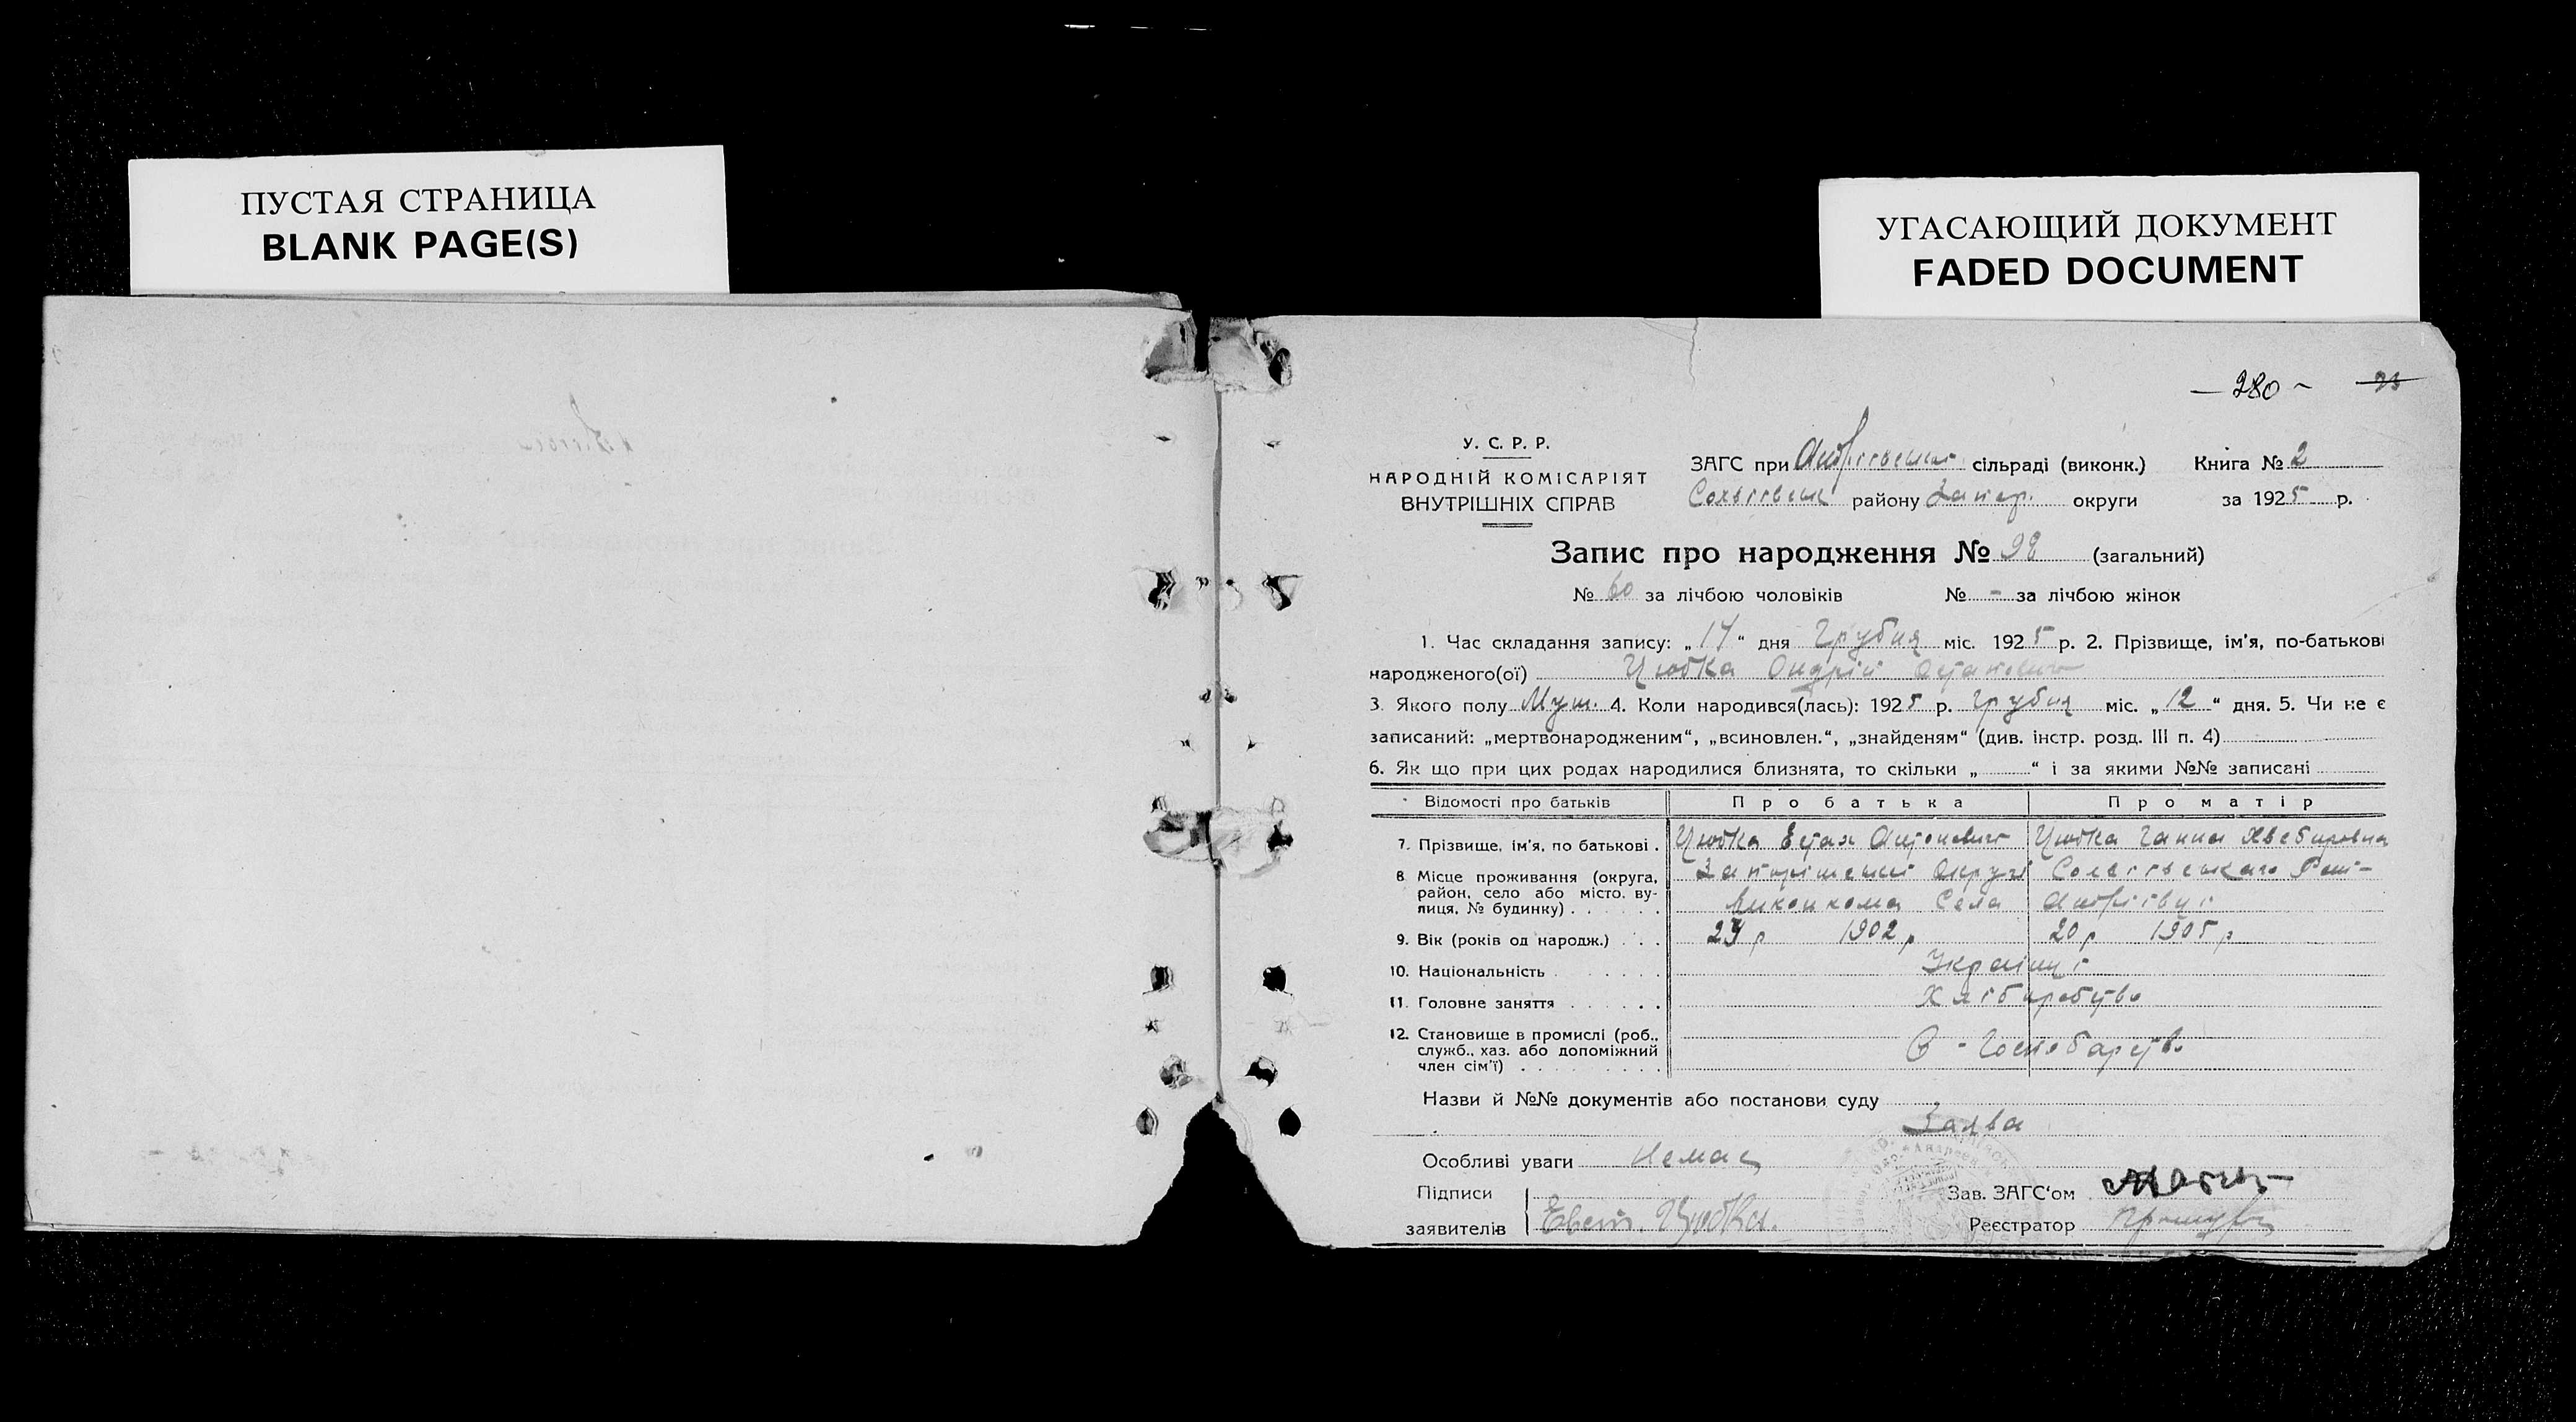 ПУСТАЯ СТРАНИЦА
BLANK PAGE(S)
УГАСАЮЩИЙ ДОКУМЕНТ
FADED DOCUMENT
— 280 ~
У. С. Р. Р.
НАРОДНІЙ КОМІСАРІЯТ
ВНУТРІШНІХ СПРАВ
ЗАГС при сільраді (виконк.) Книга № 2
району Запор. округи за 1925 р.
Запис про народження № 98 (загальний)
№ 60 за лічбою чоловіків № - за лічбою жінок
1. Час складання запису: „17“ дня Грудня міс. 1925 р. 2. Прізвище, ім'я, по-батькові
народженого(ої) Цюбка Андрій
3. Якого полу Муш. 4. Коли народився(лась): 1925 р. Грудня міс. „12“ дня. 5. Чи не є
записаний: „мертвонародженим“, „всиновлен.“, „знайденям“ (див. інстр. розд. III п. 4)
6. Як що при цих родах народилися близнята, то скільки „ “ і за якими №№ записані
Відомості про батьків Про батька Про матір
7. Прізвище, ім'я, по батькові . Цюбка Антонович Цюбка Ганна
8. Місце проживання (округа, район, село або місто, вулиця, № будинку) . . . . . . Округи
Села
9. Вік (років од народж.) . . . 1902 р 20 р 1905 р
10. Національність . . . . . . . Українці
11. Головне заняття . . . . . . Хліборобство
12. Становище в промислі (роб., служб., хаз. або допоміжний член сім'ї) . . . . . . . . . .
Назви й №№ документів або постанови суду
Заява
Особливі уваги Немає
Підписи Зав. ЗАГС'ом
заявителів Цюбка. Реєстратор